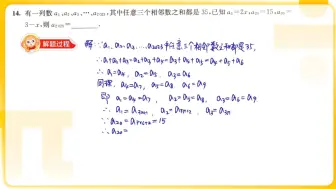 14. 有一列数a₁,a₂,a₃,⋯,a₂₀₂₃,其中任意三个相邻数之和都是35,已知a₂=2x,a₂₀=15,a₉₉=
3−x,则a₂₀₂₃=______.
解题过程
解: ∵a₁, a₂, a₃, … a₂₀₂₃中任意三个相邻数之和都是35,
∴a₁+a₂+a₃=a₂+a₃+a₄=a₃+a₄+a₅=a₄+a₅+a₆
∴a₁=a₄, a₂=a₅, a₃=a₆
同理, a₄=a₇, a₅=a₈, a₆=a₉
即 a₁=a₄=a₇, a₂=a₅=a₈, a₃=a₆=a₉
∵a₂₀=